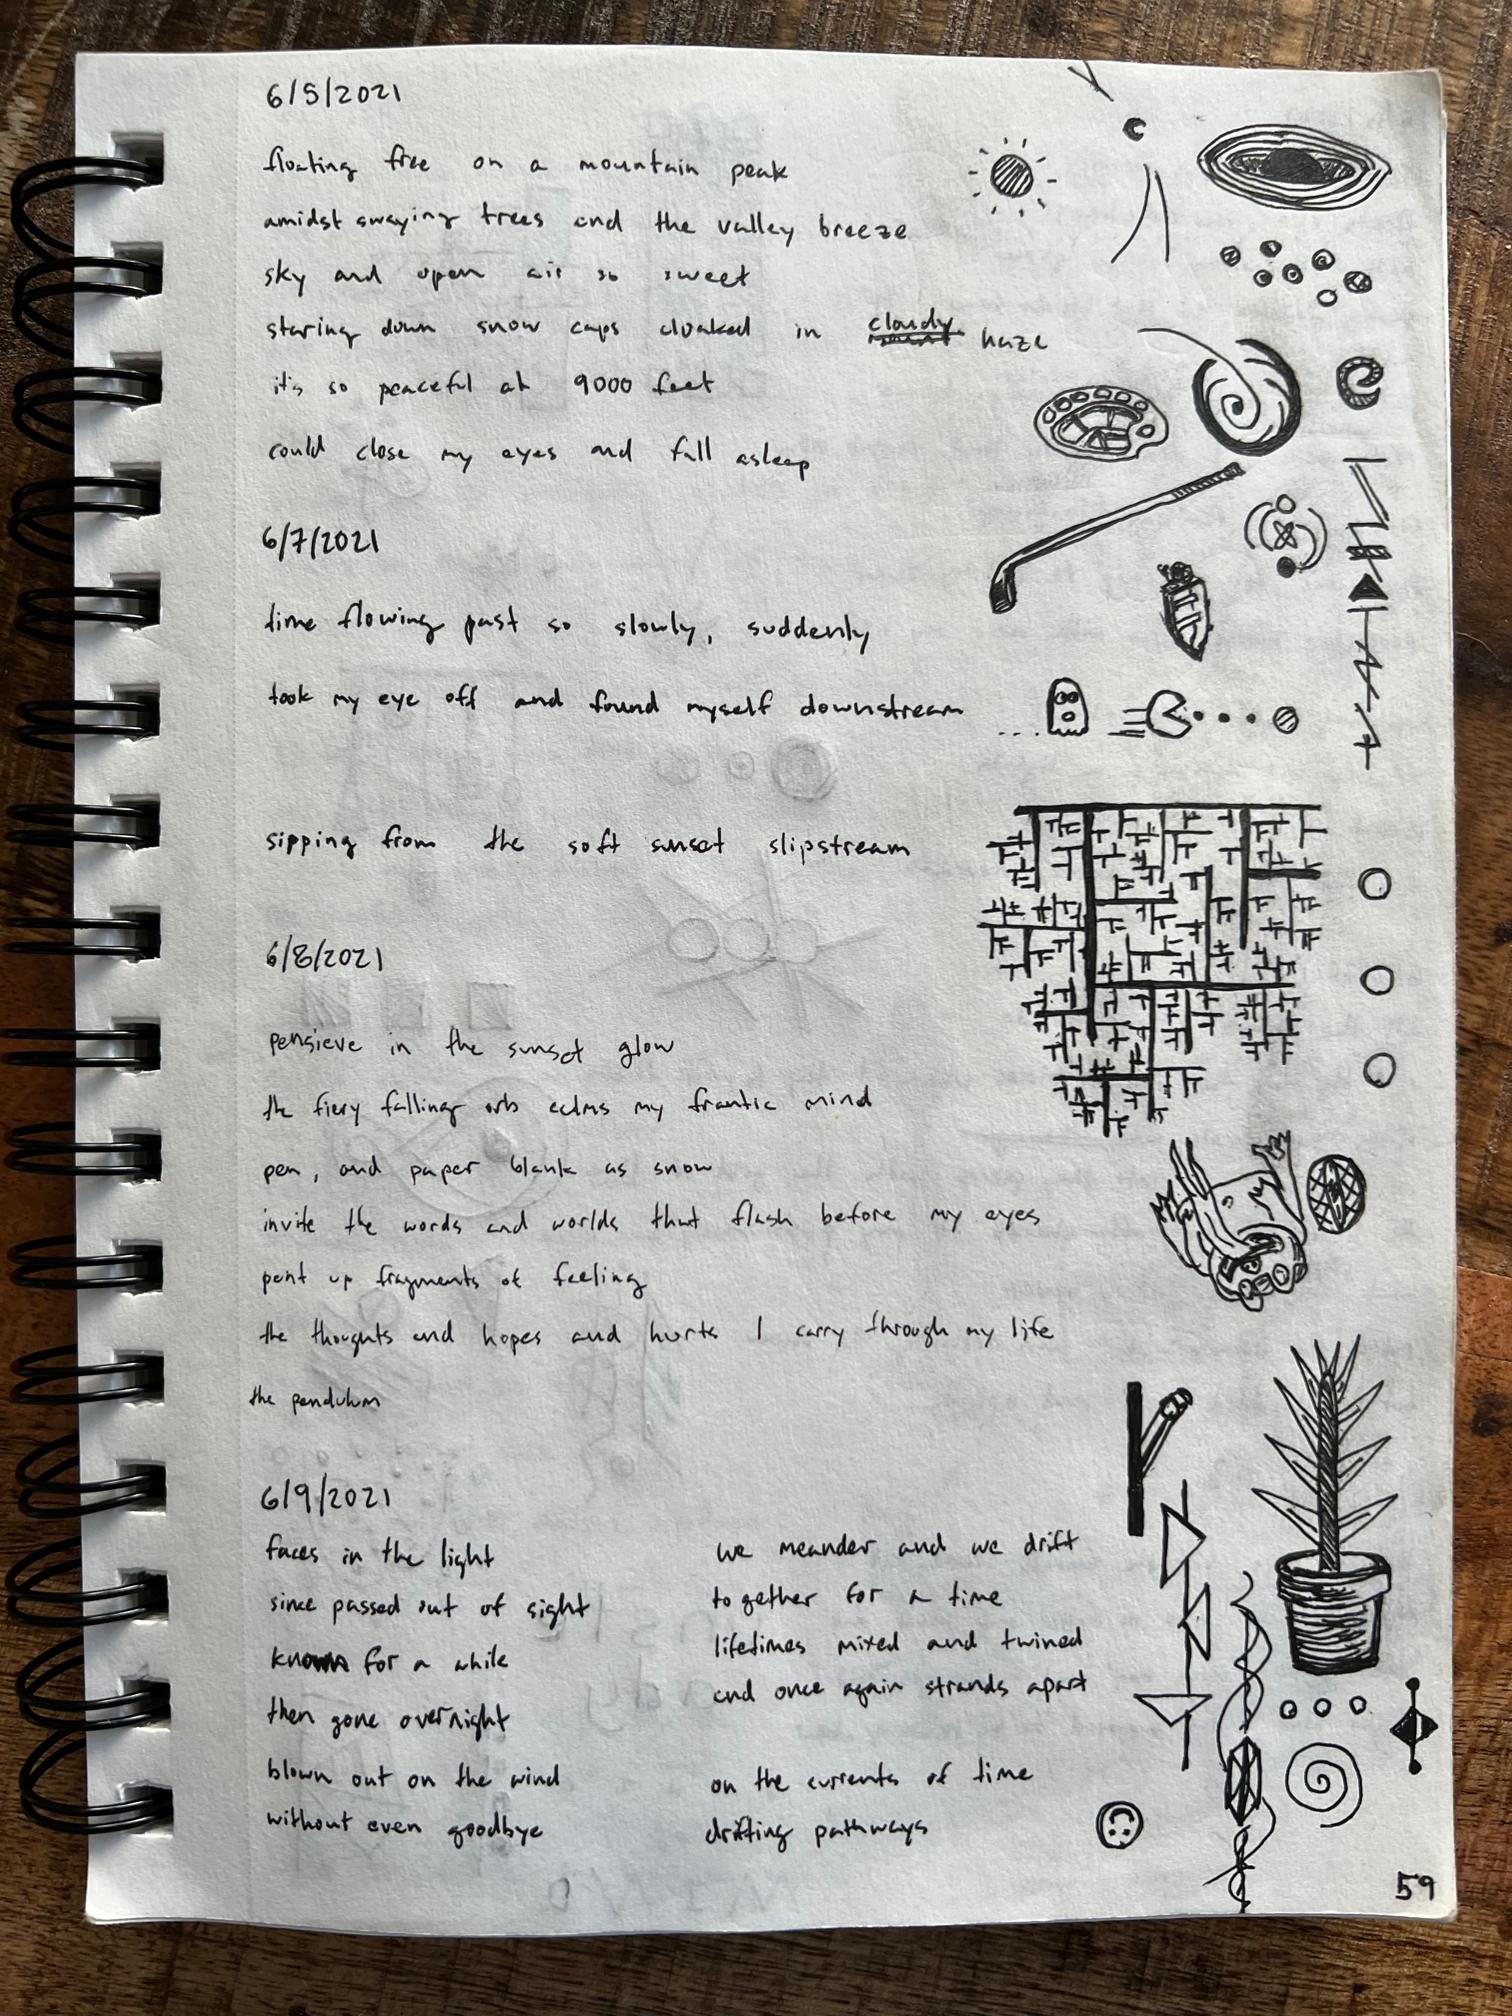 6/5/2021
floating free on a mountain peak
amidst swaying trees and the valley breeze
sky and open air so sweet
staring down snow caps cloaked in cloudy haze
it's so peaceful at 9000 feet
could close my eyes and fall asleep
6/7/2021
time flowing past so slowly, suddenly
took my eye off and found myself downstream
sipping from the soft sunset slipstream
6/8/2021
pensieve in the sunset glow
the fiery falling orb calms my frantic mind
pen, and paper blank as snow
invite the words and worlds that flash before my eyes
pent up fragments of feeling
the thoughts and hopes and hurts I carry through my life
the pendulum
6/9/2021
faces in the light
since passed out of sight
known for a while
then gone overnight
blown out on the wind
without even goodbye
we meander and we drift
together for a time
lifetimes mixed and twined
and once again strands apart
on the currents of time
drifting pathways
59